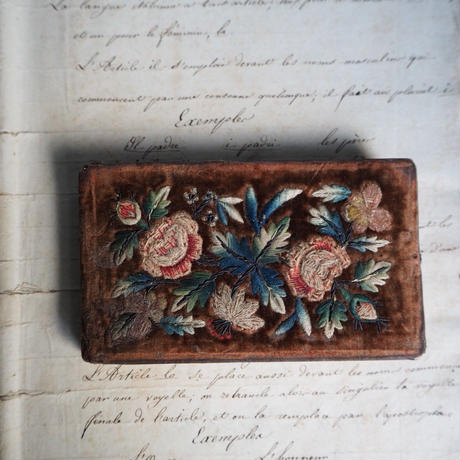 La langue Italienne a
et un pour le féminin, la.
L'Article il s'emploie devant les noms masculins qui
commencent par une consonne quelconque; il fait au pluriel i
Exemples
Il padre i padri les pères
L'Article la se place aussi devant les noms commenç
par une voyelle; on retranche alors au singulier la voyelle
finale de l'article, et on la remplace par l'apostrophe
Exemples
l'honneur